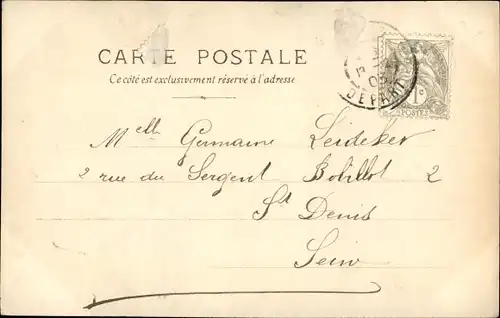 CARTE POSTALE
Ce côté est exclusivement réservé à l'adresse
05
DEPART
1c
POSTES
Melle Germaine Leideker
2 rue du Sergent Bobillot 2
St Denis
Seine